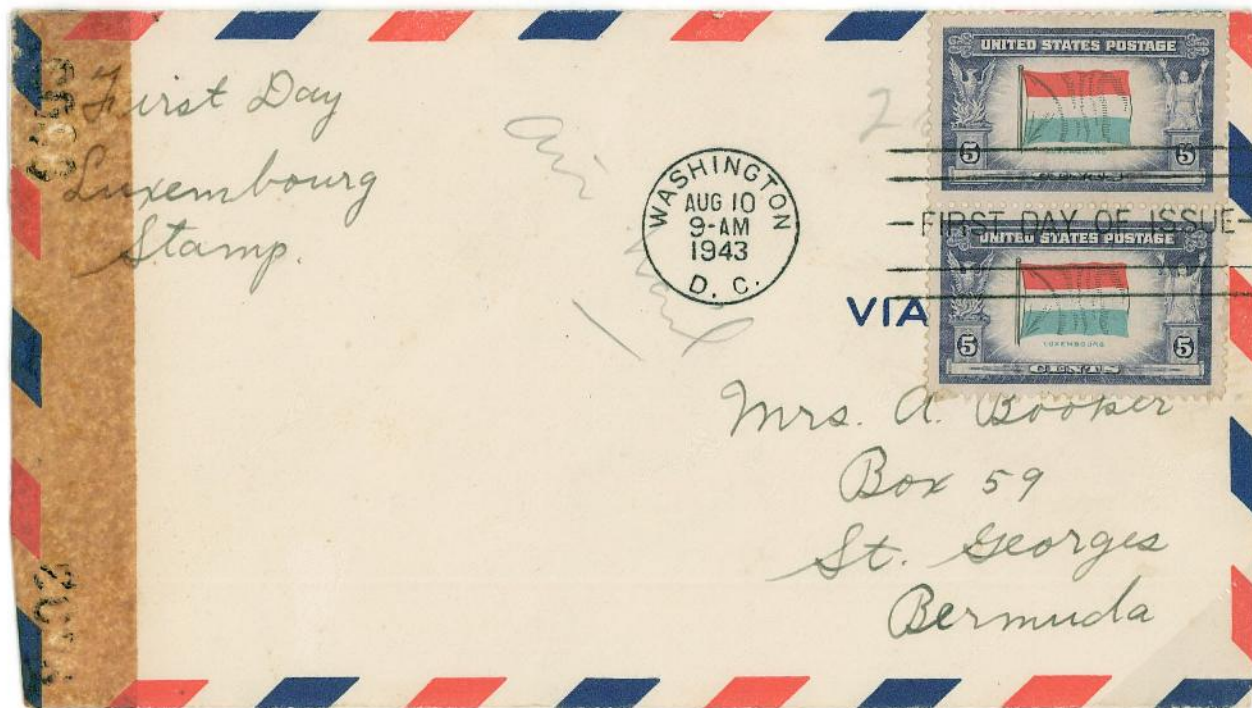 First Day
Luxembourg
Stamp.
Air
Mail
WASHINGTON
AUG 10
9-AM
1943
D. C.
UNITED STATES POSTAGE
5 5
FIRST DAY OF ISSUE
UNITED STATES POSTAGE
LUXEMBOURG
5 5
CENTS
VIA
Mrs. A. Booker
Box 59
St. Georges
Bermuda